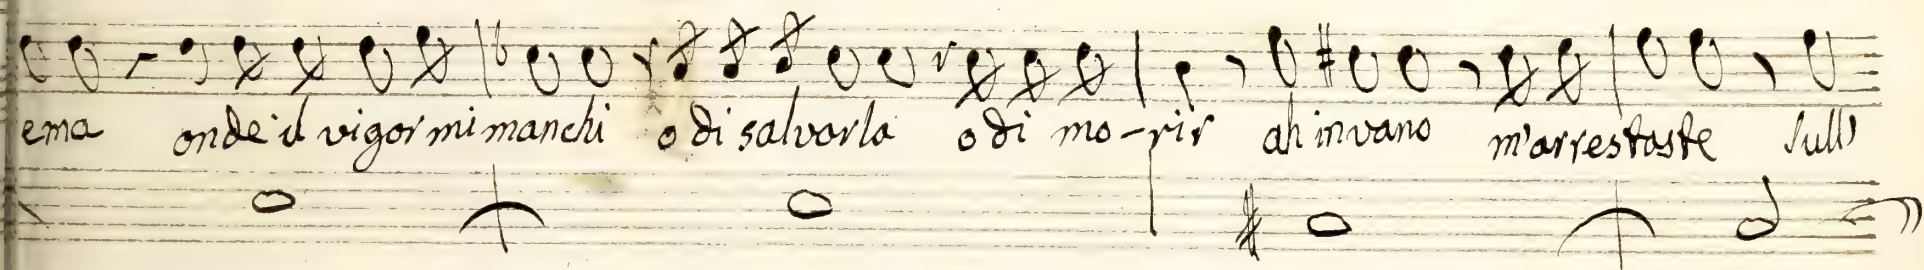 ema onde il vigor mi manchi o di salvarla o di mo-rir ah invano m'arrestaste sull'